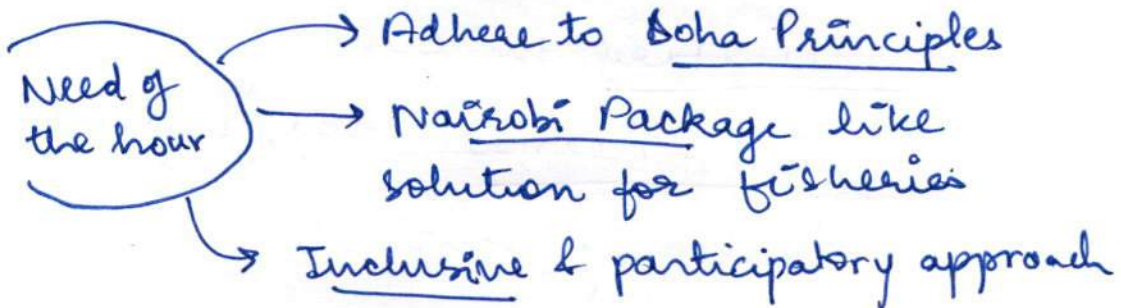 Need of
the hour
Adhere to Doha Principles
Nairobi Package like
solution for fisheries
Inclusive & participatory approach